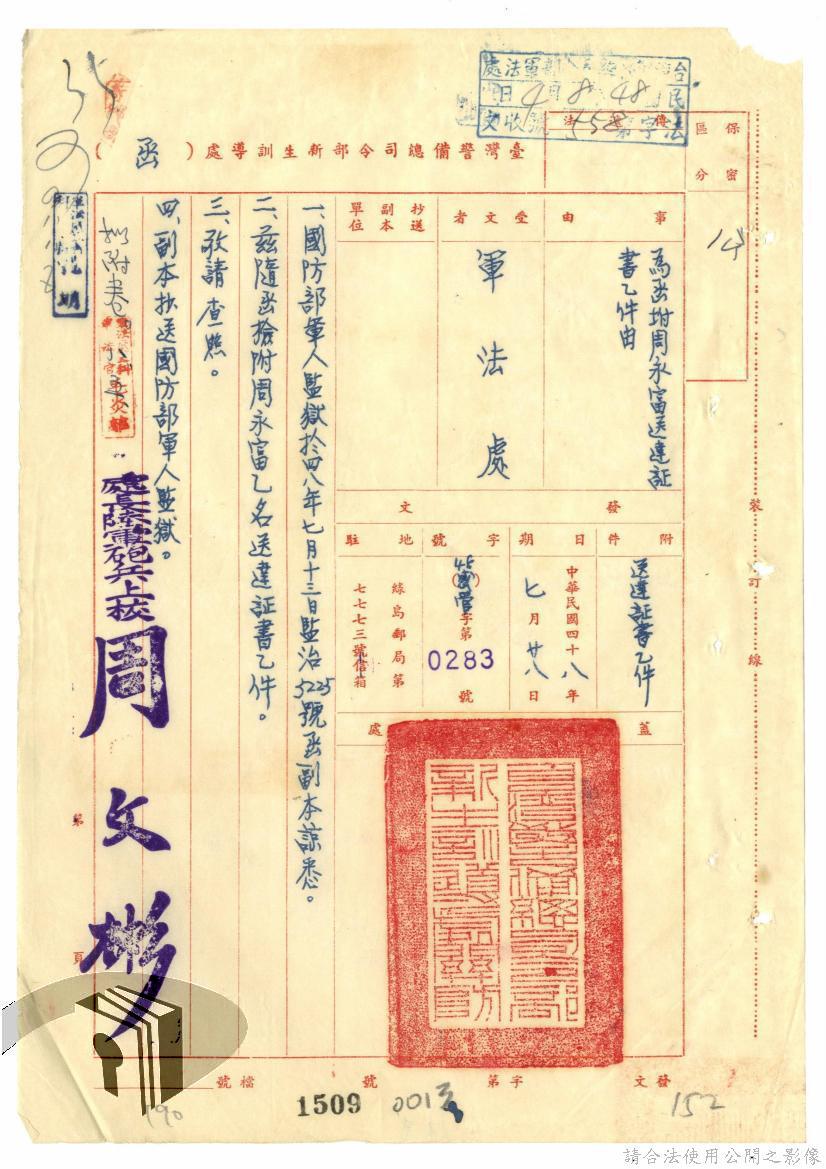 臺灣警備總司令部新生訓導處（函）
保密區分
事由
為函附周永富送達証
書乙件由
受文者
軍法處
抄送副本單位
發文
附件
送達証書乙件
日期
中華民國四十八年
七月廿八日
字號
字第
0283
號
駐地
綠島郵局第
七七七三號信箱
蓋
處
一、國防部軍人監獄於四八年七月十三日監治5225號函副本諒悉。
二、茲隨函檢附周永富乙名送達証書乙件。
三、敬請查照。
四、副本抄送國防部軍人監獄。
處長陸軍砲兵上校周文彬
擬附卷
裝訂線
第
頁
發文
字第
號
檔號
1509
152
190
請合法使用公開之影像